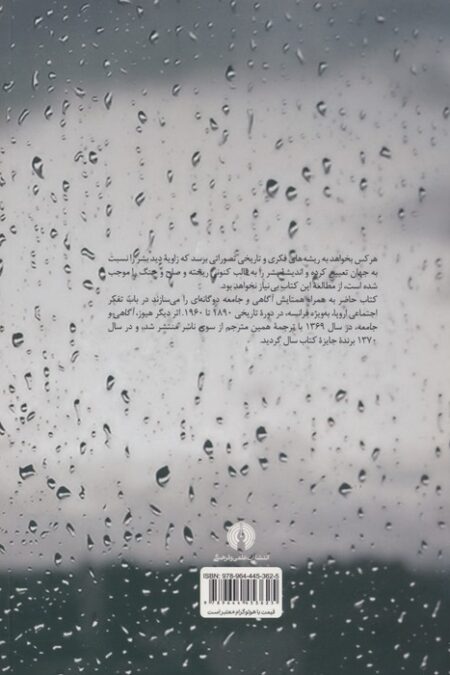 هرکس بخواهد به ریشه‌های فکری و تاریخی تصوراتی برسد که زاویهٔ دید بشر را نسبت
به جهان تعیین کرده و اندیشهٔ بشر را به قالب کنونی ریخته و صلح و جنگ را موجب
شده است، از مطالعهٔ این کتاب بی‌نیاز نخواهد بود.
کتاب حاضر به همراه همتایش آگاهی و جامعه دوگانه‌ای را می‌سازند در باب تفکر
اجتماعی اروپا، به‌ویژه فرانسه، در دورهٔ تاریخی ۱۸۹۰ تا ۱۹۶۰. اثر دیگر هیوز، آگاهی و
جامعه، در سال ۱۳۶۹ با ترجمهٔ همین مترجم از سوی ناشر منتشر شد، و در سال
۱۳۷۰ برندهٔ جایزهٔ کتاب سال گردید.
انتشارات علمی و فرهنگی
ISBN: 978-964-445-362-5
9 789644 453625
قیمت با هولوگرام معتبر است